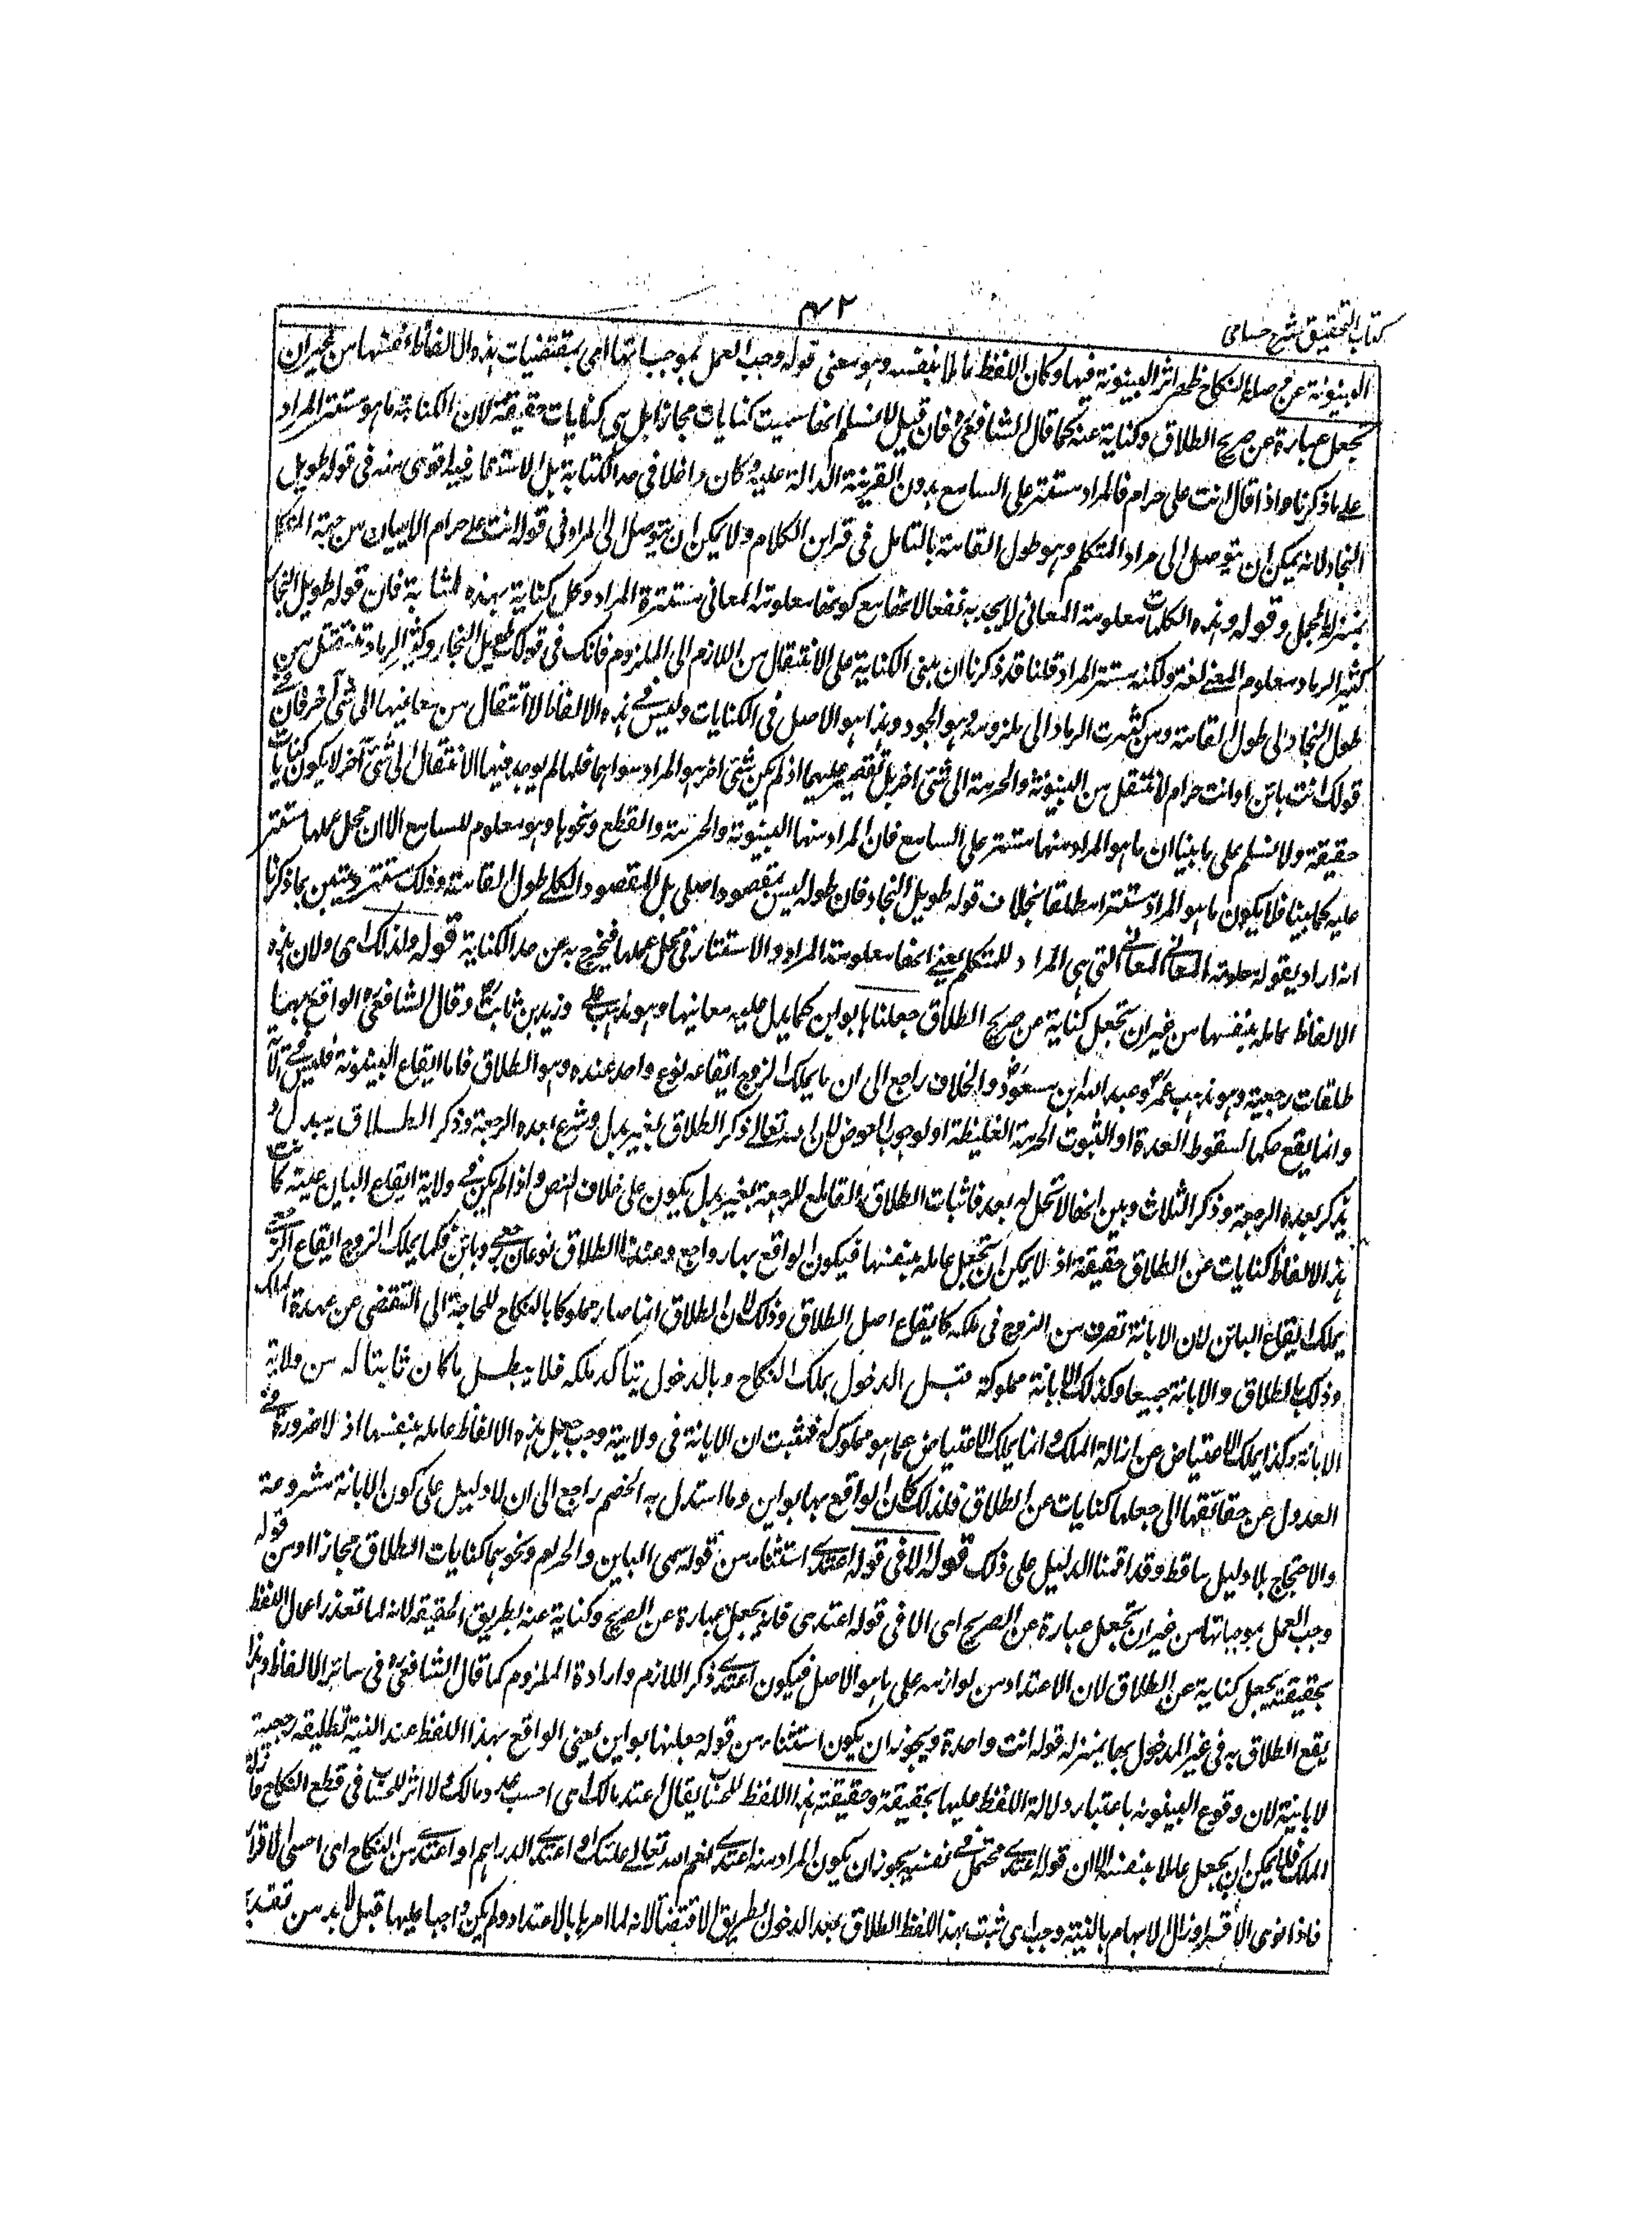 كتاب التحقيق شرح حسامى
٤٢
البينونة عن وصلة النكاح ظهر اثر البينونة فيها وكان اللفظ عاملا بنفسه وهو معنى قوله وجب العمل بموجباتها اى بمقتضيات هذه الالفاظ انفسها من غير ان
تجعل عبارة عن صريح الطلاق وكناية عنه كما قال الشافعى فان قيل لا نسلم انها سميت كنايات مجازا بل هى كنايات حقيقة لان الكناية ما هو مستتر المراد
على ما ذكرنا واذا قال انت على حرام فالمراد مستتر على السامع بدون القرينة الدالة عليه فكان داخلا فى حد الكناية بل الاستتار فيه اقوى منه فى قوله طويل
النجاد لانه يمكن ان يتوصل الى مراد المتكلم وهو طول القامة بالتامل فى قراين الكلام ولا يمكن ان يتوصل الى المراد فى قوله انت على حرام الا ببيان من جهة المتكلم
بمنزلة المجمل وقوله وهذه الكلمات معلومة المعانى لا يجديه نفعا لانها مع كونها معلومة المعانى مستترة المراد وكل كناية بهذه المثابة فان قوله طويل النجاد
كثير الرماد معلوم المعنى لغة ولكنه مستتر المراد قلنا قد ذكرنا ان مبنى الكناية على الانتقال من اللازم الى الملزوم فانك فى قولك طويل النجاد وكثير الرماد تنتقل من
طول النجاد الى طول القامة ومن كثرة الرماد الى ملزومه وهو الجود وهذا هو الاصل فى الكنايات وليس فى هذه الالفاظ لا انتقال من معانيها الى شئ آخر فان فى
قولك انت باين او انت حرام لا تنتقل من البينونة والحرمة الى شئ اخر بل تقتصر عليهما اذ لم يكن شئ اخر هو المراد سواهما فلما لم يوجد فيها الانتقال الى شئ آخر لا يكون كنايات
حقيقة ولا نسلم على ما بينا ان ما هو المراد منها مستتر على السامع فان المراد منها البينونة والحرمة والقطع ونحوها وهو معلوم للسامع الا ان محل عملها مستتر
عليه كما بينا فلا يكون ما هو المراد مستترا مطلقا بخلاف قوله طويل النجاد فان طوله ليس بمقصود اصلى بل المقصود الكلى طول القامة وذلك مستتر وتبين بما ذكرنا
انه اراد بقوله معلومة المعانى المعانى التى هى المراد للمتكلم يعنى انها معلومة المراد والاستتار فى محل عملها فيخرج به عن حد الكناية قوله ولذلك اى ولان هذه
الالفاظ عاملة بنفسها من غير ان تجعل كناية عن صريح الطلاق جعلناها بواين كما يدل عليه معانيها وهو مذهب على وزيد بن ثابت وقال الشافعى الواقع بها
طلقات رجعية وهو مذهب عمر وعبد الله ابن مسعود والخلاف راجع الى ان ما يملك الزوج ايقاعه نوع واحد عنده وهو الطلاق فاما ايقاع البينونة فليس فى
وانما يقع حكما لسقوط العدة او لثبوت الحرمة الغليظة او لوجوب العوض لان الله تعالى ذكر الطلاق بغير بدل وشرع بعده الرجعة وذكر الطلاق ببدل و
يذكر بعده الرجعة وذكر الثلاث وبين انها لا تحل له بعد فاثبات الطلاق القاطع للرجعة بغير بدل يكون على خلاف النص واذا لم يكن فى ولاية ايقاع الباين عينه كانت
هذه الالفاظ كنايات عن الطلاق حقيقة اذ لا يمكن ان تجعل عاملة بنفسها فيكون الواقع بها رواجع وعندنا الطلاق نوعان رجعى وباين فكما يملك الزوج ايقاع الرجعى
يملك ايقاع الباين لان الابانة تصرف من الزوج فى ملكه كايقاع اصل الطلاق وذلك لان الطلاق انما صار مملوكا بالنكاح للحاجة الى التفصى عن عهدة الملك
وذلك بالطلاق والابانة جميعا وكذلك الابانة مملوكة قبل الدخول بملك النكاح وبالدخول يتاكد ملكه فلا يبطل ما كان ثابتا له من ولاية
الابانة وكذا يملك الاعتياض عن ازالة الملك وانما يملك الاعتياض عما هو مملوك له فثبت ان الابانة فى ولايته وجب جعل هذه الالفاظ عاملة بنفسها اذ لا ضرورة فى
العدول عن حقائقها الى جعلها كنايات عن الطلاق فلذلك كان الواقع بها بواين وما استدل به الخصم راجع الى ان لا دليل على كون الابانة مشروعة
والاحتجاج بلا دليل ساقط وقد اقمنا الدليل على ذلك قوله الا فى قوله اعتدى استثناء من قوله سمى الباين والحرام ونحوهما كنايات الطلاق مجازا او من قوله
وجب العمل بموجباتها من غير ان تجعل عبارة عن الصريح اى الا فى قوله اعتدى فانه يجعل عبارة عن الصريح وكناية عنه بطريق الحقيقة لانه لما تعذر اعمال اللفظ
بحقيقته يجعل كناية عن الطلاق لان الاعتداد من لوازمه على ما هو الاصل فيكون اعتدى ذكر اللازم وارادة الملزوم كما قال الشافعى فى سائر الالفاظ ولهذا
يقع الطلاق به فى غير المدخول بها بمنزلة قوله انت واحدة ويجوز ان يكون استثناء من قوله جعلنها بواين يعنى الواقع بهذا اللفظ عند النية تطليقة رجعية
لا باينة لان وقوع البينونة باعتبار دلالة اللفظ عليها بحقيقته وحقيقة هذا اللفظ للحساب يقال اعتد مالك اى احسب عدد مالك ولا اثر للحساب فى قطع النكاح وازالة
الملك فلا يمكن ان يجعل عاملا بنفسه الا ان قوله اعتدى محتمل فى نفسه يجوز ان يكون المراد منه اعتدى نعم الله تعالى عليك او اعتدى الدراهم او اعتدى من النكاح اى احصى الاقراء
فاذا نوى الاقراء وزال الابهام بالنية وجب اى ثبت بهذا اللفظ الطلاق بعد الدخول بطريق الاقتضاء لانه لما امرها بالاعتداد ولم يكن واجبا عليها قبل لا بد من تقديم